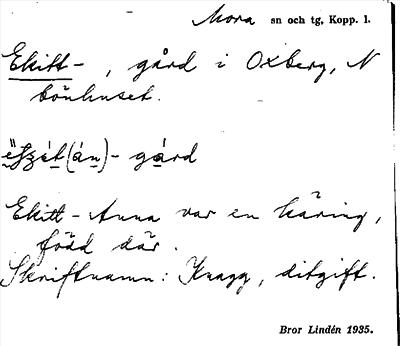 Mora sn och tg, Kopp. l.
Ekitt- , gård i Oxberg, N
bönhuset.
gård
Ekitt-Anna var en käring,
född där.
Skriftnamn: Knagg, ditgift.
Bror Lindén 1935.